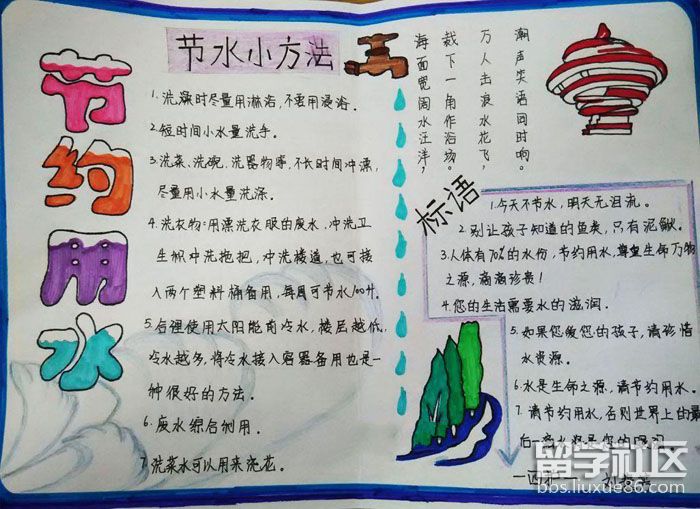 节约用水
节水小方法
1. 洗澡时尽量用淋浴，不要用浸浴。
2. 短时间小水量洗手。
3. 洗菜、洗碗、洗器物等，不长时间冲漂，
尽量用小水量洗涤。
4. 洗衣物：用漂洗衣服的废水，冲洗卫
生帜冲洗拖把，冲洗楼道，也可接
入两个塑料桶备用，每周可节水100升。
5. 合理使用太阳能前冷水，楼层越低，
冷水越多，将冷水接入容器备用也是一
种很好的方法。
6. 废水综合利用。
7. 洗菜水可以用来浇花。
潮声笑语同时响。
万人击浪水花飞，
裁下一角作浴场。
海面宽阔水汪洋，
标语
1. 今天不节水，明天无泪流。
2. 别让孩子知道的鱼类，只有泥鳅。
3. 人体有70%的水份，节约用水，尊重生命万物
之源，滴滴珍贵！
4. 您的生活需要水的滋润。
5. 如果您爱您的孩子，请珍惜
水资源。
6. 水是生命之源，请节约用水。
7. 请节约用水，否则世界上的最
后一滴水将是您的眼泪
留学社区
bbs.liuxue86.com